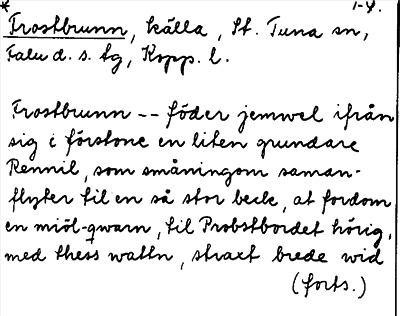 * 1-4.
Frostbrunn, källa, St. Tuna sn,
Falu d. s. tg, Kopp. l.
Frostbrunn -- föder jemwel ifrån
sig i förstone en liten grundare
Rennil, som småningom saman-
flyter til en så stor beck, at fordom
en miöl-qwarn, til Probstbordet hörig,
med thess wattn, straxt brede wid
(forts.)